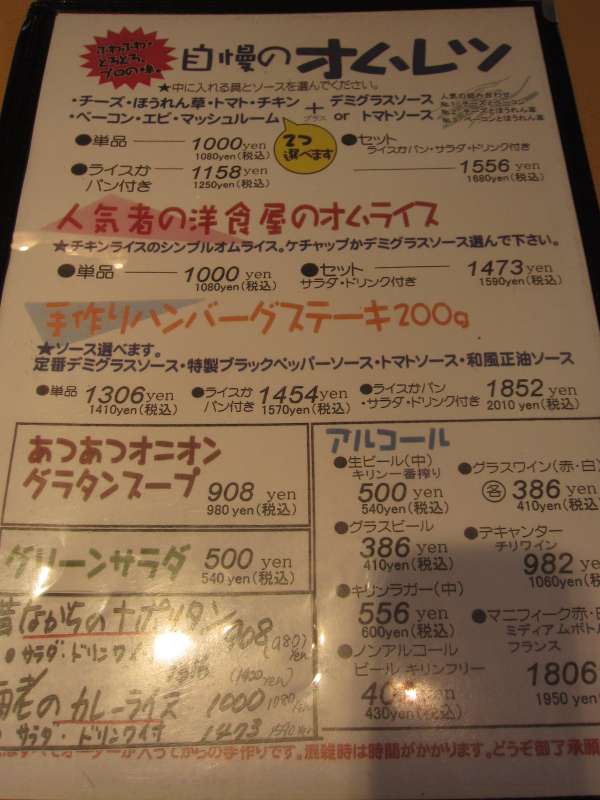 ふわふわ・
とろとろ、
プロの味
自慢のオムレツ
★中に入れる具とソースを選んでください。
・チーズ・ほうれん草・トマト・チキン
・ベーコン・エビ・マッシュルーム
+
プラス
デミグラスソース
or トマトソース
人気の組み合わせ
2つ
選べます
●単品 1000yen
1080yen(税込)
●セット
ライスかパン・サラダ・ドリンク付き
1556yen
1680yen(税込)
●ライスか
パン付き
1158yen
1250yen(税込)
人気者の洋食屋のオムライス
★チキンライスのシンプルオムライス。ケチャップかデミグラスソース選んで下さい。
●単品 1000yen
1080yen(税込)
●セット
サラダ・ドリンク付き
1473yen
1590yen(税込)
手作りハンバーグステーキ200g
★ソース選べます。
定番デミグラスソース・特製ブラックペッパーソース・トマトソース・和風正油ソース
●単品 1306yen
1410yen(税込)
●ライスか
パン付き
1454yen
1570yen(税込)
●ライスかパン
・サラダ・ドリンク付き
1852yen
2010 yen(税込)
あつあつオニオン
グラタンスープ
908 yen
980 yen(税込)
グリーンサラダ 500 yen
540 yen(税込)
昔ながらのナポリタン
908 (980)
yen
●サラダ・ドリンク付
カレーライス 1000 1080
yen
サラダ・ドリンク付 1473
アルコール
●生ビール(中)
キリン一番搾り
500 yen
540yen(税込)
●グラスビール
386 yen
410yen(税込)
●キリンラガー(中)
556 yen
600yen(税込)
●ノンアルコール
ビール キリンフリー
yen
430yen(税込)
●グラスワイン(赤・白)
各 386 yen
410yen(税込)
●デキャンター
チリワイン
982 yen
1060yen(税込)
●マニフィーク赤・白
ミディアムボトル
フランス
1806
1950 yen(税込)
ってからの手作りです。混雑時は時間がかかります。どうぞ御了承願